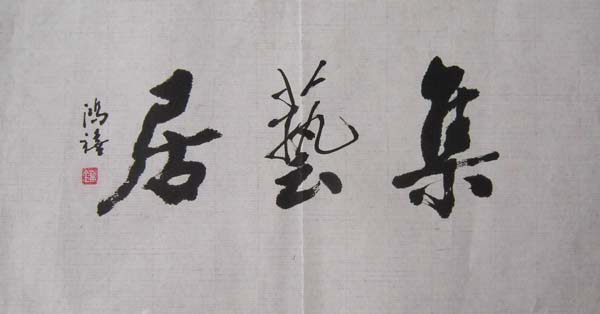 集藝居
鴻禧